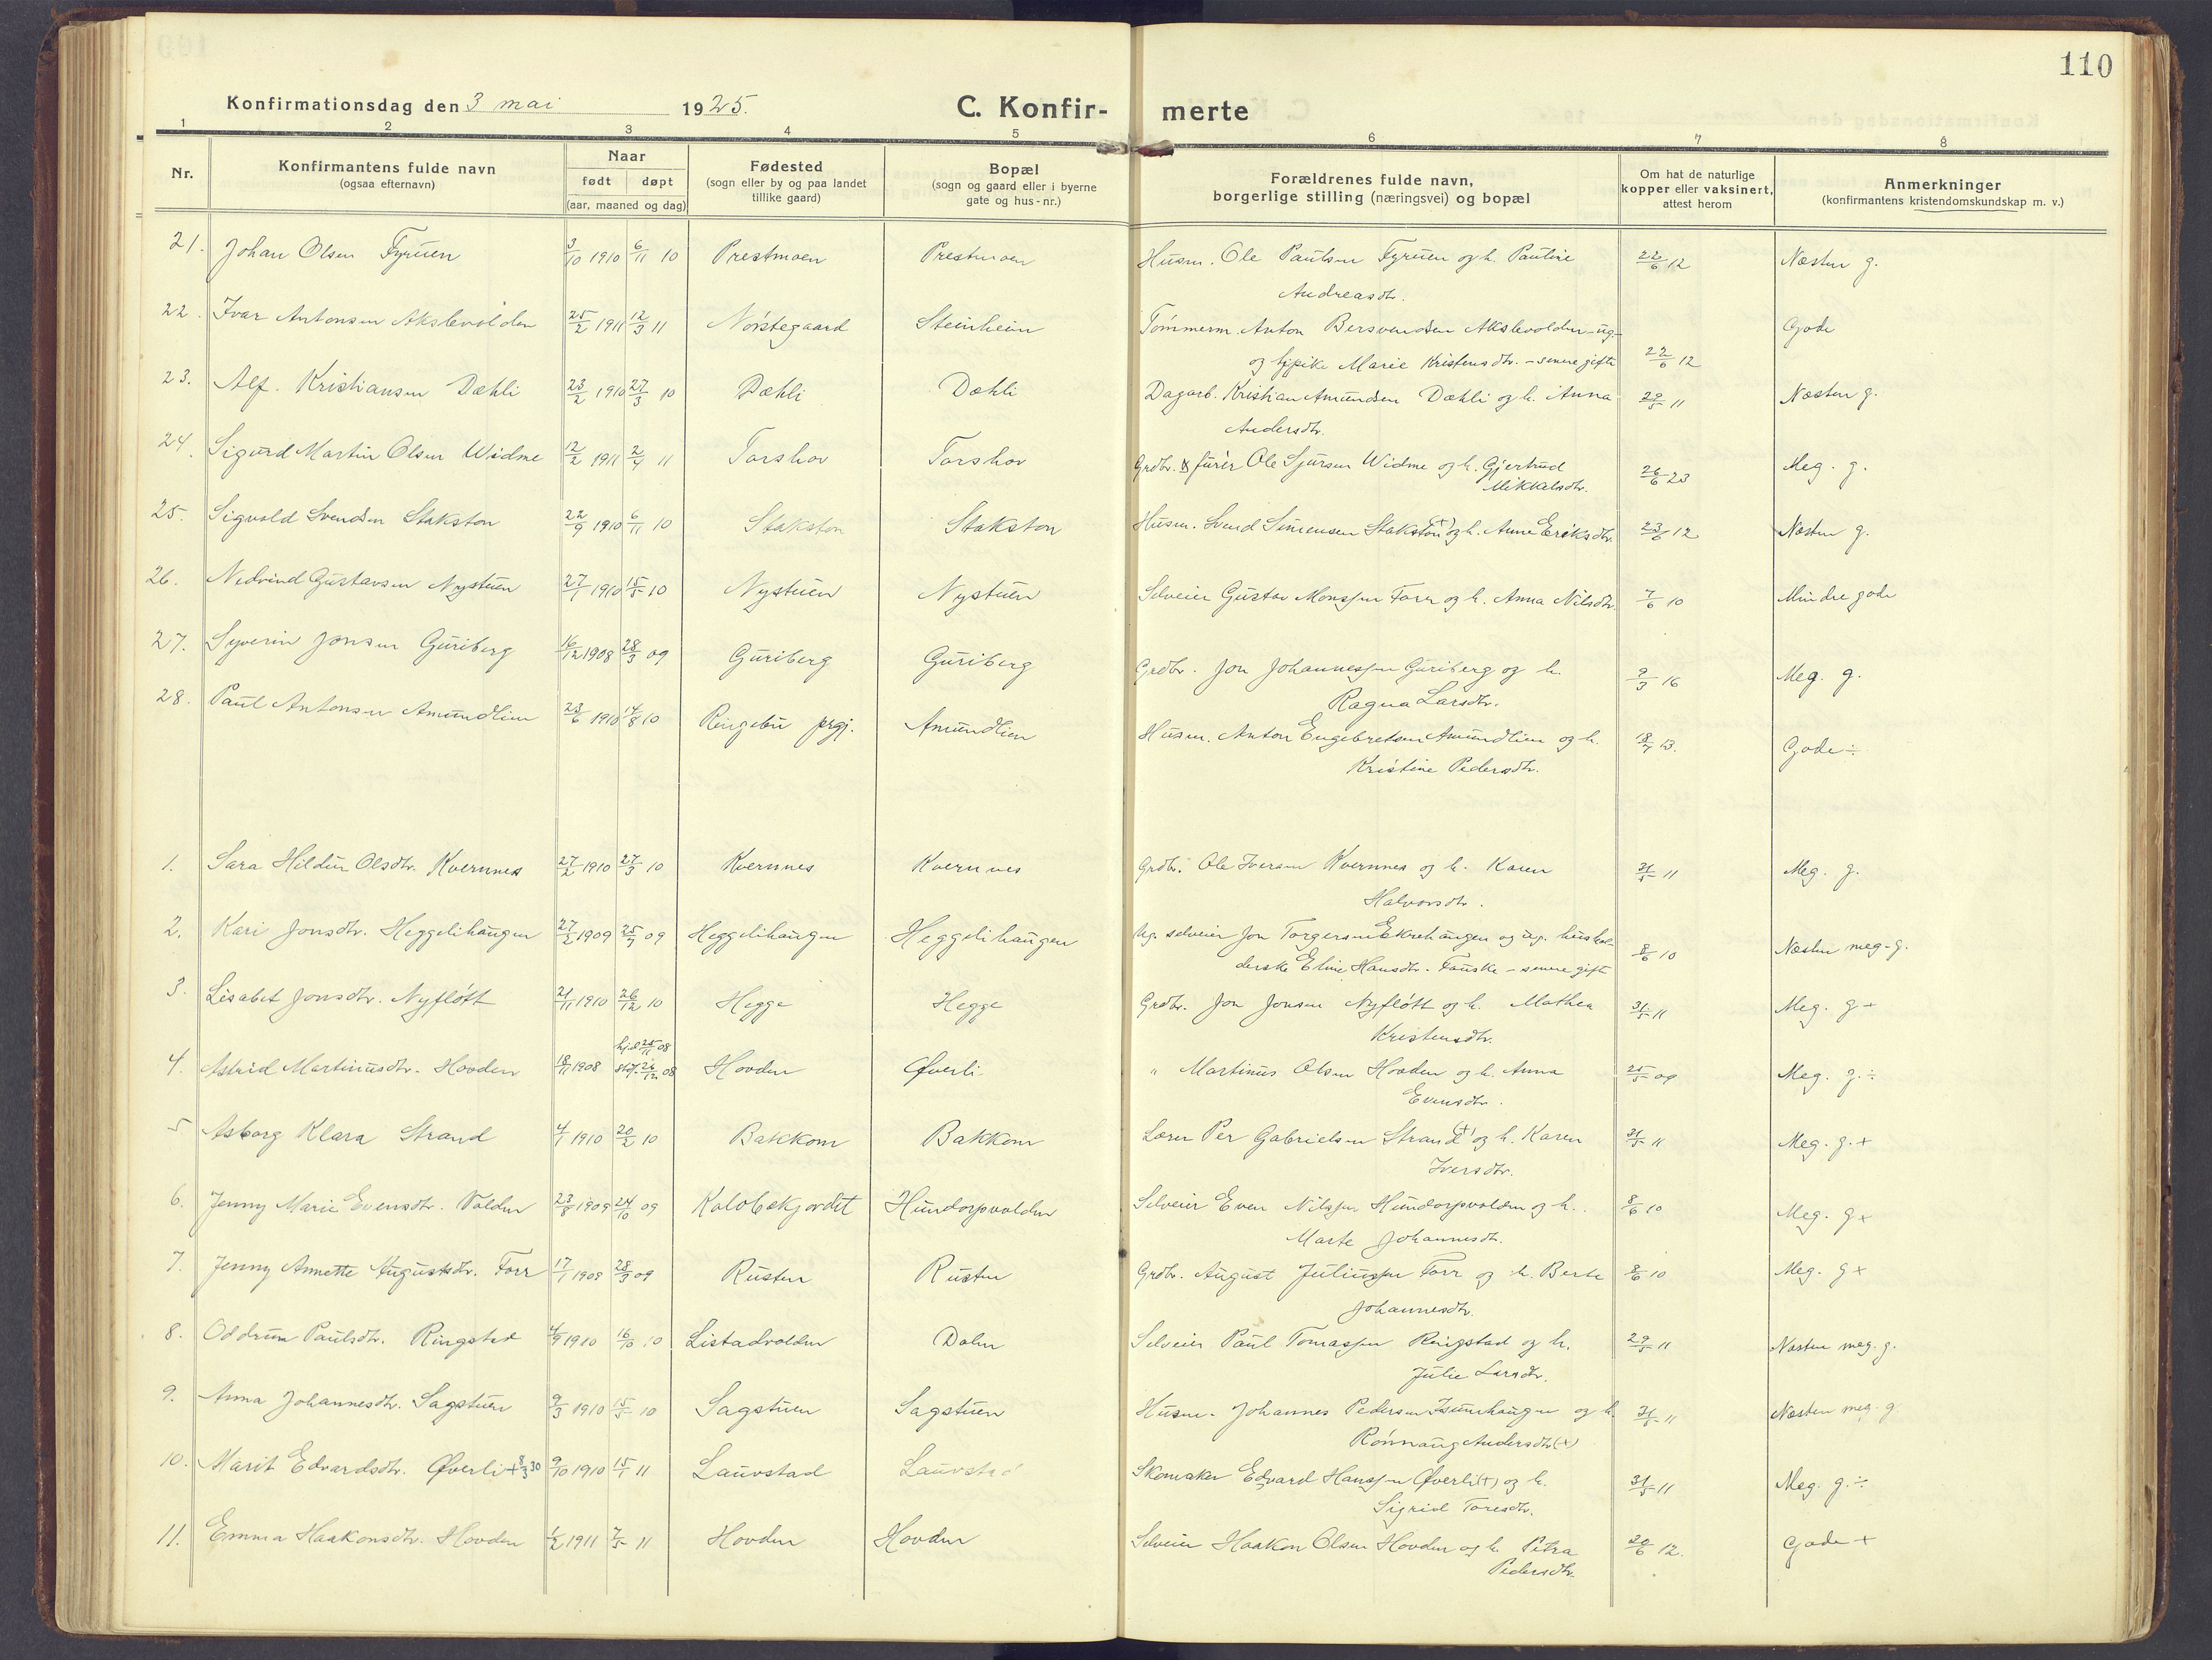 110
Konfirmationsdag den 3 mai 1925.
C. Konfirmerte
1 2 3 4 5 6 7 8
Nr.
Konfirmantens fulde navn
(ogsaa efternavn)
Naar
født døpt
(aar, maaned og dag)
Fødested
(sogn eller by og paa landet
tillike gaard)
Bopæl
(sogn og gaard eller i byerne
gate og hus-nr.)
Forældrenes fulde navn,
borgerlige stilling (næringsvei) og bopæl
Om hat de naturlige
kopper eller vaksinert,
attest herom
Anmerkninger
(konfirmantens kristendomskundskap m. v.)
21. Johan Olsen Fyruen 3/10 1910 6/11 10 Prestmoen Prestmoen Husm. Ole Paulsen Fyruen og h. Pauline 22/6 12 Næsten g.
Andreasdtr.
22. Ivar Antonsen Akslevolden 25/2 1911 12/3 11 Nørstegaard Steinheim Tømmerm. Anton Bersvendsen Akslevolden - ug. Gode
og pike Marie Kristensdtr. - senere gifte 22/6 12
23. Alf Kristiansen Dæhli 23/2 1910 27/3 10 Dæhli Dæhli Dagarb. Kristian Amundsen Dæhli og h. Anna 29/5 11 Næsten g.
Andersdtr.
24. Sigurd Martin Olsen Widme 12/2 1911 2/4 11 Torshov Torshov Grdbr. & furer Ole Sjursen Widme og h. Gjertrud 26/6 23 Meg. g.
Mikkelsdtr.
25. Sigvald Svendsen Stakston 22/9 1910 6/11 10 Stakston Stakston Husm. Svend Simensen Stakston (+) og h. Anne Eriksdtr. 23/6 12 Næsten g.
26. Nedvind Gustavsen Nystuen 27/1 1910 15/5 10 Nystuen Nystuen Selveier Gustav Monssen Forr og h. Anna Nilsdtr. 7/6 10 Mindre gode
27. Syverin Jonsen Guriberg 16/12 1908 28/3 09 Guriberg Guriberg Grdbr. Jon Johannessen Guriberg og h. 9/3 16 Meg. g.
Ragna Larsdtr.
28. Paul Antonsen Amundlien 23/6 1910 14/8 10 Ringebu prgj. Amundlien Husm. Anton Engebretsen Amundlien og h. 18/7 13. Gode ÷
Kristine Pedersdtr.
1. Sara Hildur Olsdtr. Kvernnes 27/2 1910 27/3 10 Kvernnes Kvernnes Grdbr. Ole Iversen Kvernnes og h. Karen 31/5 11 Meg. g.
Halvorsdtr.
2. Kari Jonsdtr. Heggelihaugen 27/2 1909 25/7 09 Heggelihaugen Heggelihaugen Ug. selveier Jon Torgersen Ekrehaugen og ug. hushol- 8/6 10 Næsten meg. g.
derske Eline Hansdtr. Fauske - senere gift
3. Lisabet Jonsdtr. Nyfløtt 21/11 1910 26/12 10 Hegge Hegge Grdbr. Jon Jonsen Nyfløtt og h. Mathea 31/5 11 Meg. g ÷
Kristensdtr.
hj.d. 25/11 08
4. Astrid Martinusdtr. Hovden 18/11 1908 stf. 26/12 08 Hovden Øverli " Martinus Olsen Hovden og h. Anna 25/5 09 Meg. g. ÷
Evensdtr.
5 Asborg Klara Strand 4/1 1910 20/2 10 Bakkom Bakkom Lærer Per Gabrielsen Strand (+) og h. Karen 31/5 11 Meg. g. +
Iversdtr.
6. Jenny Marie Evensdtr. Volden 23/8 1909 24/10 09 Kolobekjordet Hundorpvolden Selveier Even Nilssen Hundorpvolden og h. 8/6 10 Meg. g +
Marte Johannesdtr.
7. Jenny Annette Augustsdtr. Forr 17/1 1909 28/3 09 Rusten Rusten Grdbr. August Juliussen Forr og h. Berte 8/6 10 Meg. g +
Johannesdtr.
8. Oddrun Paulsdtr. Ringstad 4/9 1910 16/10 10 Listadvolden Dalen Selveier Paul Tomassen Ringstad og h. 29/5 11 Næsten meg. g.
Julie Larsdtr.
9. Anna Johannesdtr. Sagstuen 9/3 1910 15/5 10 Sagstuen Sagstuen Husm. Johannes Pedersen Isumhaugen og h. 31/5 11 Næsten meg. g.
Rønnaug Andersdtr (+)
10. Marit Edvardsdtr. Øverli + 8/3 30 9/10 1910 15/1 11 Lauvstad Lauvstad Skomaker Edvard Hanssen Øverli (+) og h. 31/5 11 Meg. g. ÷
Sigrid Toresdtr.
11. Emma Haakonsdtr. Hovden 1/2 1911 7/5 11 Hovden Hovden Selveier Haakon Olsen Hovden og h. Petra 20/6 12. Gode +
Pedersdtr.